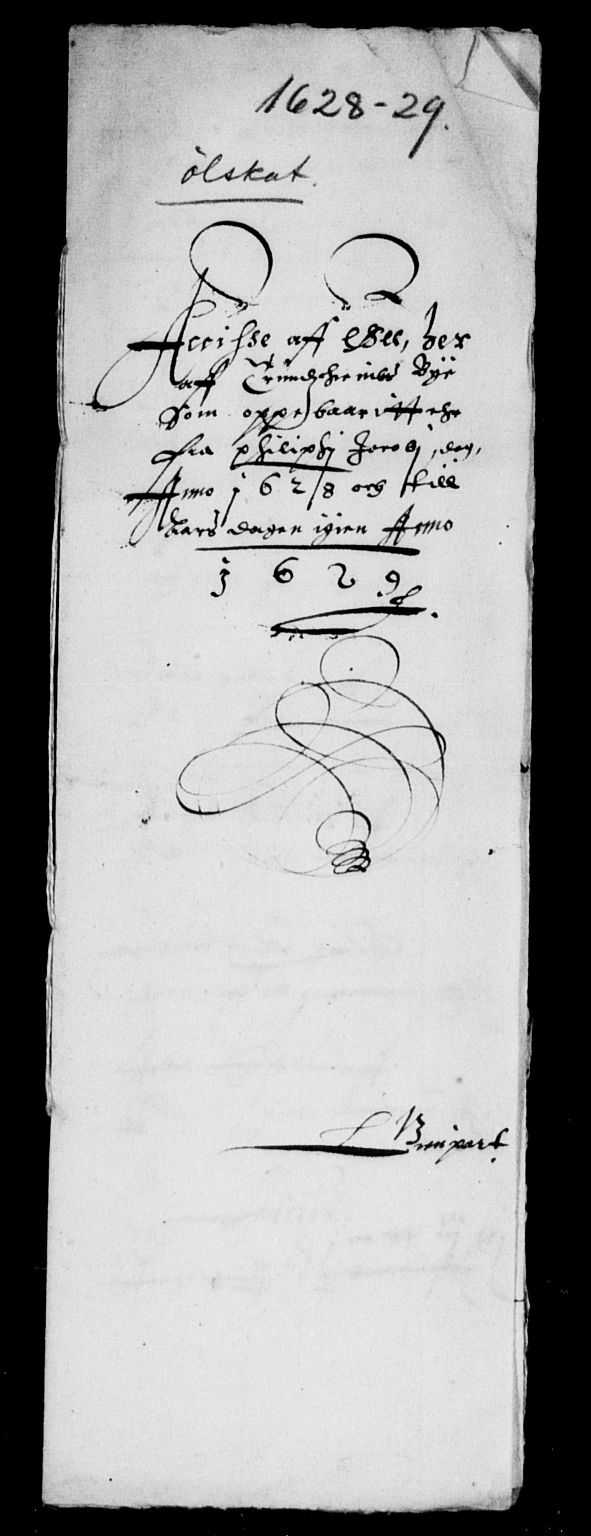 1628-29.
ölskat.
Accisse aff Øll, her
aff Trundhiembs Bye
Som oppebaarit ehr
Fra philiphi Jacobj, dag,
Anno 1628 och till
Aars dagen igien Anno
1629